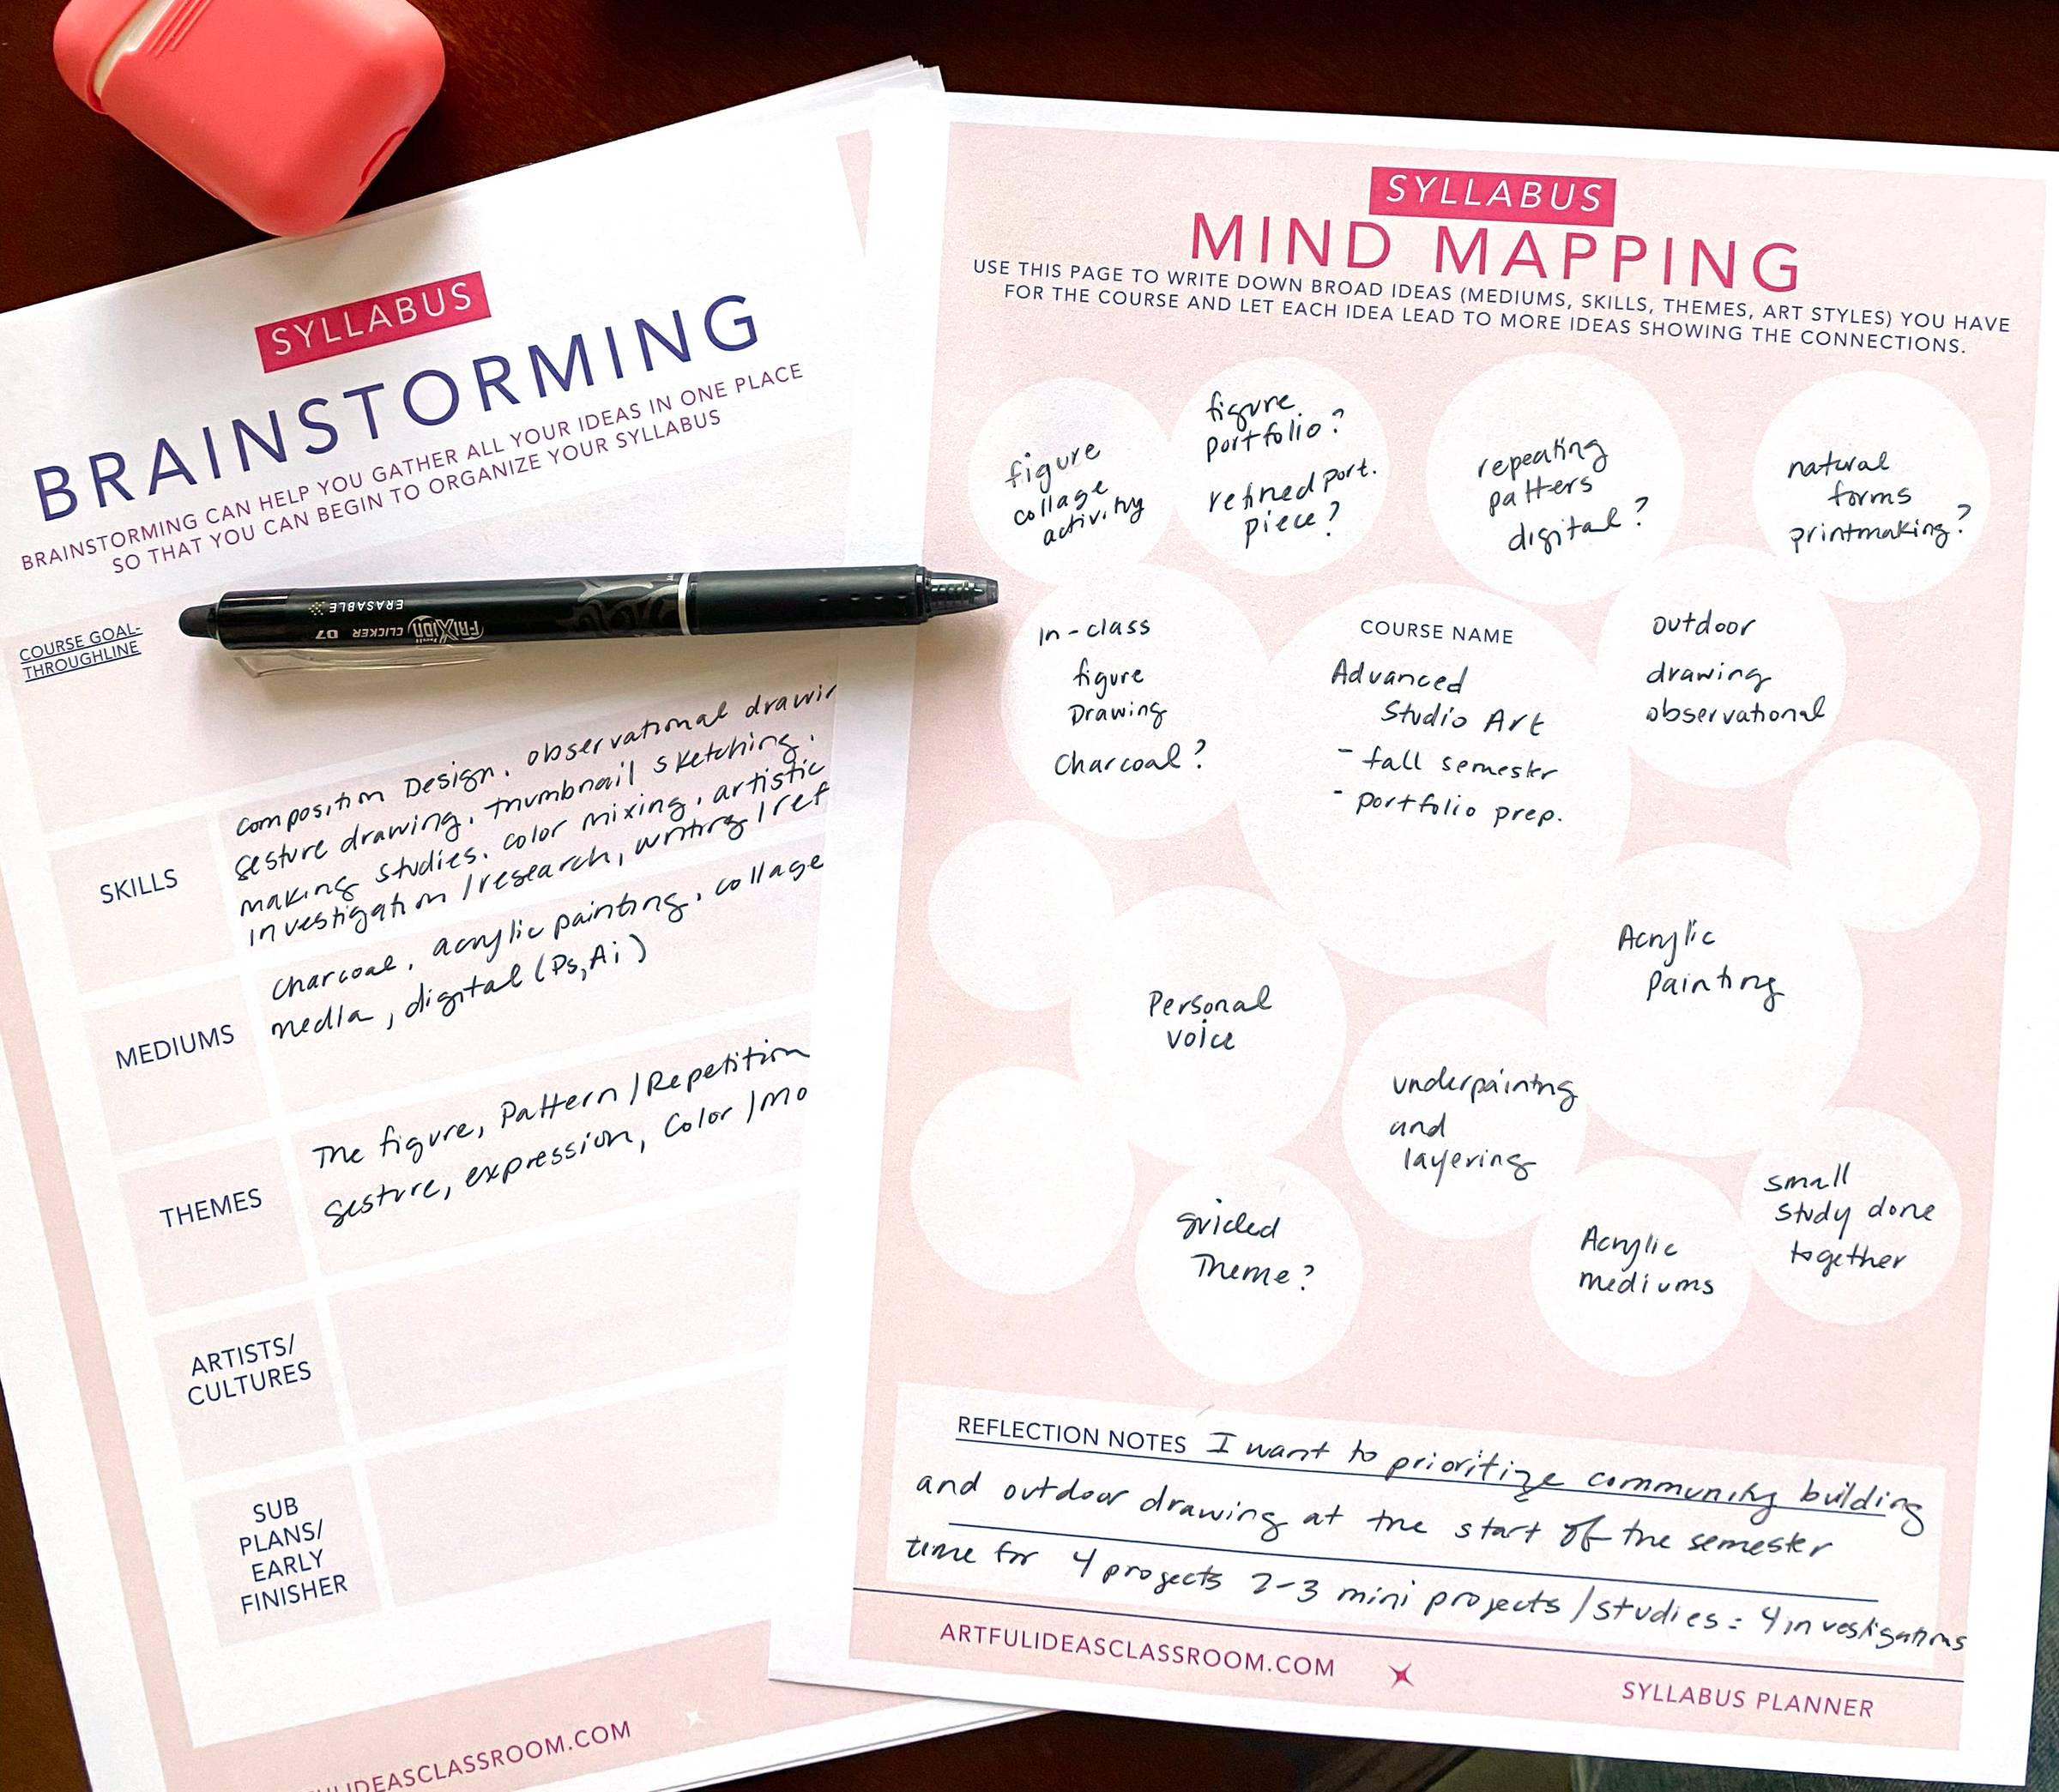 SYLLABUS
BRAINSTORMING
BRAINSTORMING CAN HELP YOU GATHER ALL YOUR IDEAS IN ONE PLACE
SO THAT YOU CAN BEGIN TO ORGANIZE YOUR SYLLABUS
ERASABLE
FRIXION CLICKER 07
COURSE GOAL-
THROUGHLINE
SKILLS
composition Design, observational
gesture drawing, thumbnail sketching,
making studies, color mixing, artistic
investigation / research, writing /
MEDIUMS
charcoal, acrylic painting, collage
media, digital (Ps, Ai)
THEMES
The figure, Pattern / Repetition
gesture, expression, Color /
ARTISTS/
CULTURES
SUB
PLANS/
EARLY
FINISHER
IDEASCLASSROOM.COM
SYLLABUS
MIND MAPPING
USE THIS PAGE TO WRITE DOWN BROAD IDEAS (MEDIUMS, SKILLS, THEMES, ART STYLES) YOU HAVE
FOR THE COURSE AND LET EACH IDEA LEAD TO MORE IDEAS SHOWING THE CONNECTIONS.
figure
collage
activity
figure
portfolio?
refined port.
piece?
repeating
patters
digital?
natural
forms
printmaking?
in-class
figure
Drawing
charcoal?
COURSE NAME
Advanced
Studio Art
- fall semester
- portfolio prep.
outdoor
drawing
observational
Personal
voice
Acrylic
Painting
underpainting
and
layering
guided
Theme?
Acrylic
mediums
small
study done
together
REFLECTION NOTES I want to prioritize community building
and outdoor drawing at the start of the semester
time for 4 projects 2-3 mini projects / studies = 4 investigations
ARTFULIDEASCLASSROOM.COM
SYLLABUS PLANNER